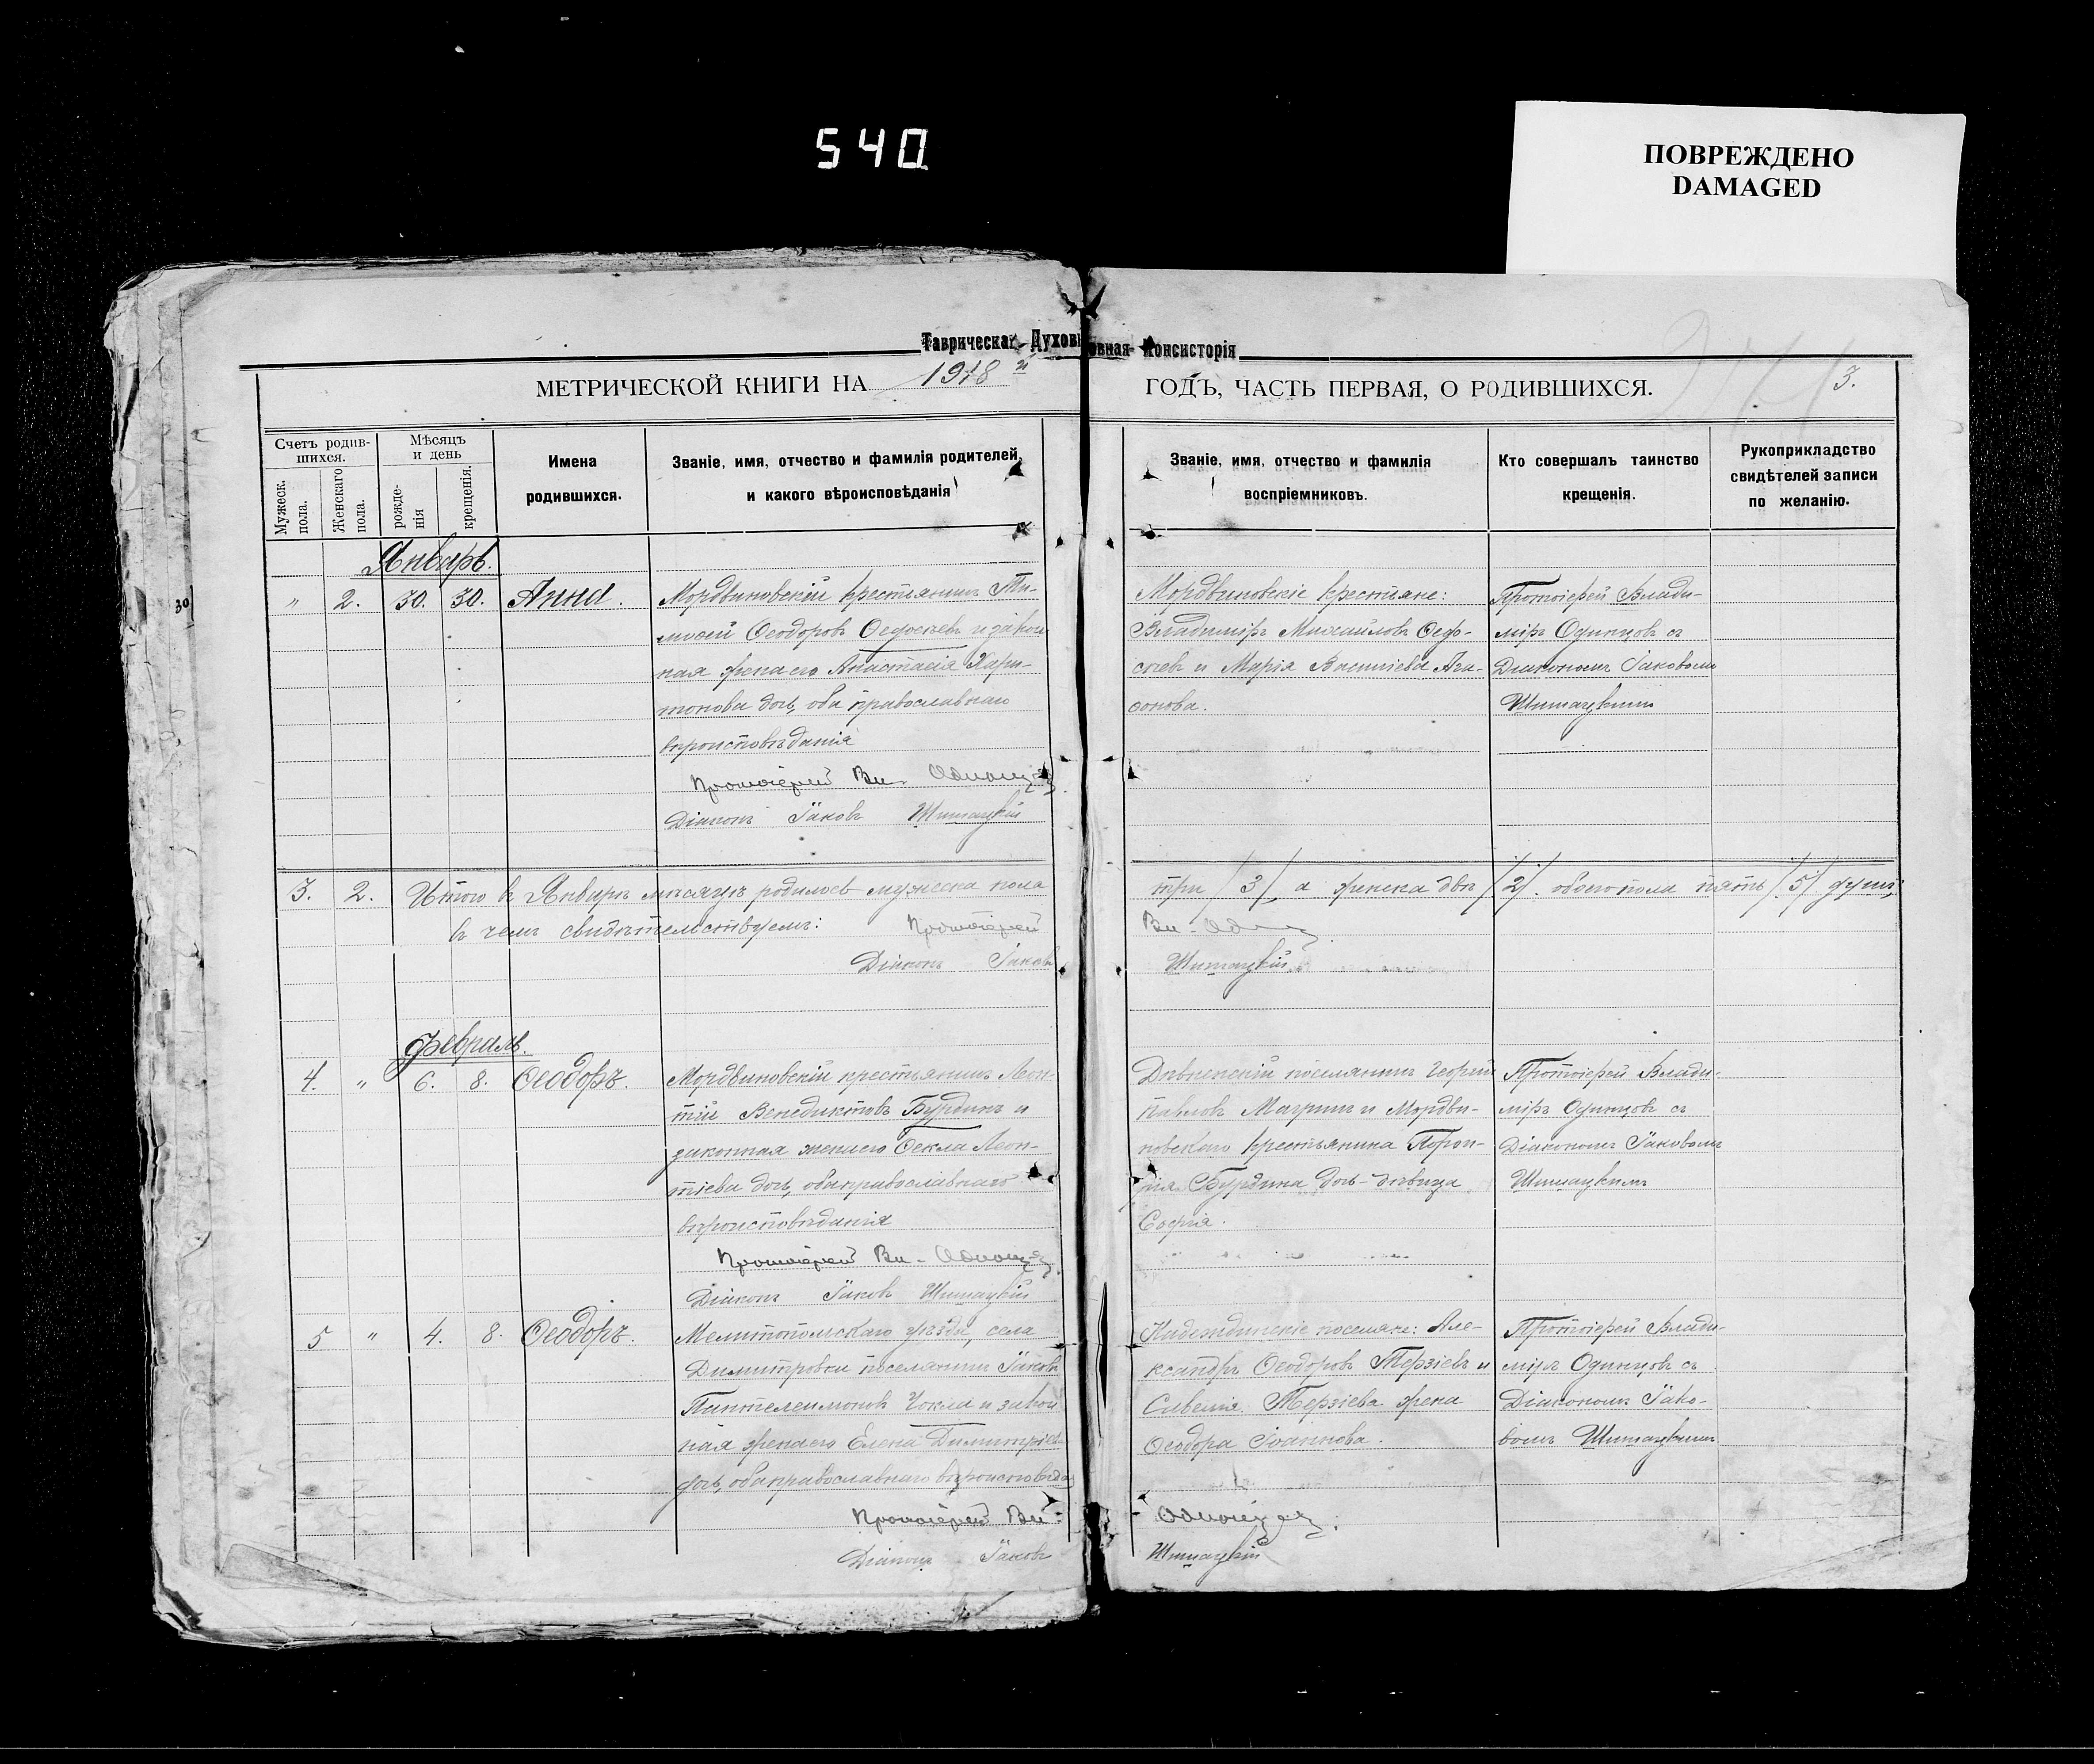 540
ПОВРЕЖДЕНО
DAMAGED
Таврическая Духовная Консисторія
МЕТРИЧЕСКОЙ КНИГИ НА 1918 й ГОДЪ, ЧАСТЬ ПЕРВАЯ, О РОДИВШИХСЯ.
3.
Счетъ родив-
шихся.
Мужеск. пола.
Женскаго пола.
Мѣсяцъ
и день
рожде-
нія
крещенія.
Имена
родившихся.
Званіе, имя, отчество и фамилія родителей,
и какого вѣроисповѣданія
Званіе, имя, отчество и фамилія
воспріемниковъ.
Кто совершалъ таинство
крещенія.
Рукоприкладство
свидѣтелей записи
по желанію.
Январь.
30
" 2. 30. 30. Анна.
Мордвиновскій крестьянинъ Ти-
моѳей Ѳеодоровъ Ѳедосѣевъ и закон-
ная жена его Анастасія Хари-
тонова дочь, оба православнаго
вѣроисповѣданія
Протоіерей Вл. Одинцовъ.
Діаконъ Іаковъ Шишацкій
Мордвиновскіе крестьяне:
Владиміръ Михаиловъ Ѳедо-
сѣевъ и Марія Васильева Ага-
ѳонова.
Протоіерей Влади-
міръ Одинцовъ съ
Діакономъ Іаковомъ
Шишацкимъ
3. 2. Итого въ Январѣ мѣсяцѣ родилось мужеска пола три /3/, а женска двѣ /2/. обоего пола пять /5/ душъ;
въ чемъ свидѣтельствуемъ: Протоіерей Вл. Од
Діаконъ Іаковъ Шишацкій
Февраль.
4. " 6. 8. Ѳеодоръ.
Мордвиновскій крестьянинъ Леон-
тій Венедиктовъ Бурдинъ и
законная жена его Ѳекла Леон-
тіева дочь, оба православнаго
вѣроисповѣданія
Протоіерей Вл. Одинцовъ.
Діаконъ Іаковъ Шишацкій
поселянинъ Георгій
Павловъ и Мордви-
новскаго крестьянина
Бурдина дочь-дѣвица
Софія.
Протоіерей Влади-
міръ Одинцовъ съ
Діакономъ Іаковомъ
Шишацкимъ
5 " 4. 8. Ѳеодоръ.
Мелитопольскаго уѣзда, села
Димитровки поселянинъ Іаковъ
Пантелеимоновъ Чокла и закон-
ная жена его Елена Димитріева
дочь, оба православнаго вѣроисповѣда
Протоіерей Вл. Одинцовъ.
Діаконъ Іаковъ Шишацкій
Надеждинскіе поселяне: Але-
ксандръ Ѳеодоровъ Терзіевъ и
Терзіева жена
Ѳеодора Іоаннова.
Протоіерей Влади-
міръ Одинцовъ съ
Діакономъ Іако-
вомъ Шишацкимъ